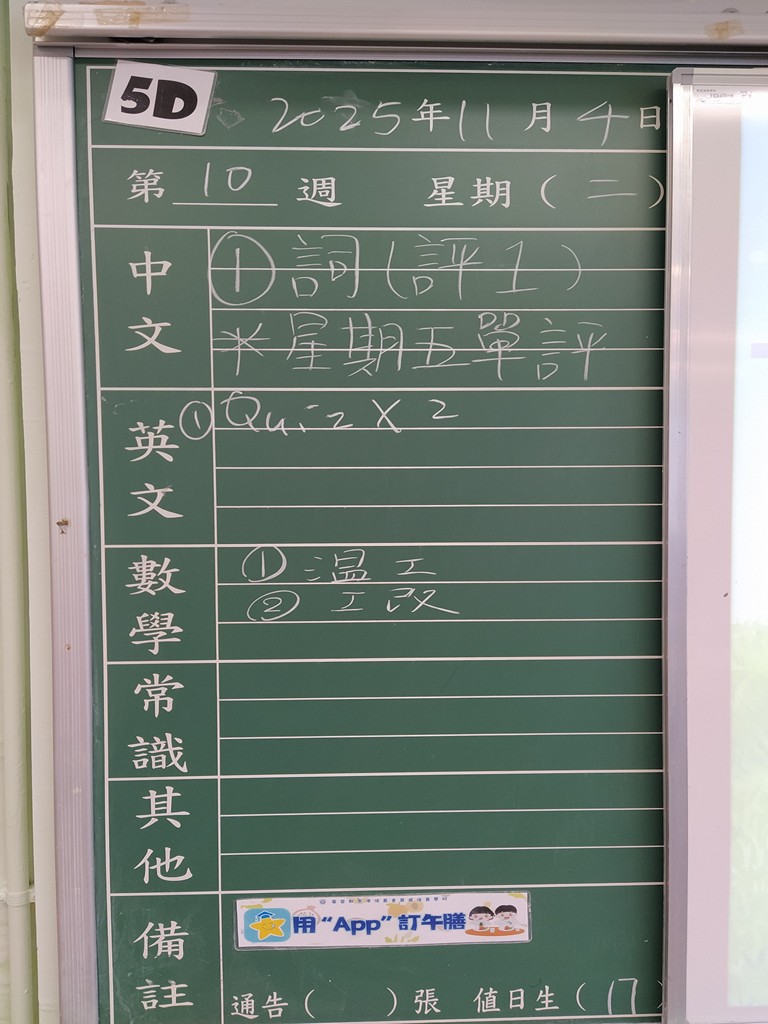 5D
2025年11月4日
第 10 週 星期(二)
中文
① 詞(評1)
*星期五單評
英文
① Quiz X 2
數學
① 温工
② 工改
常識
其他
備註
用“App”訂午膳
通告( )張 值日生(17)